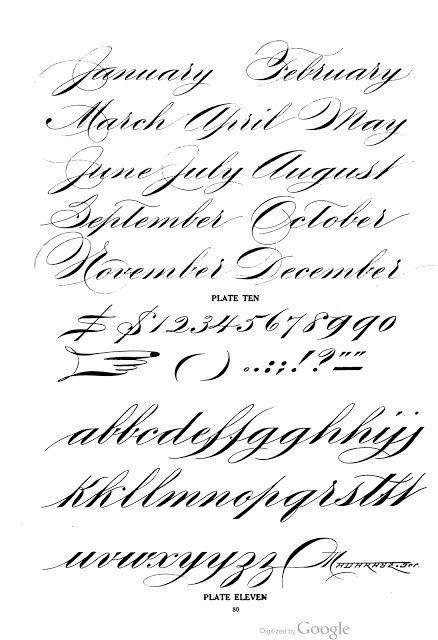 January February
March April May
June July August
September October
November December
PLATE TEN
$ $ 1 2 3 4 5 6 7 8 9 9 0
( ) . . : ; ! ? " "
abbcdeffgghhijj
kkllmnopqrsttt
uvwxyyzz
PLATE ELEVEN
80
Digitized by Google